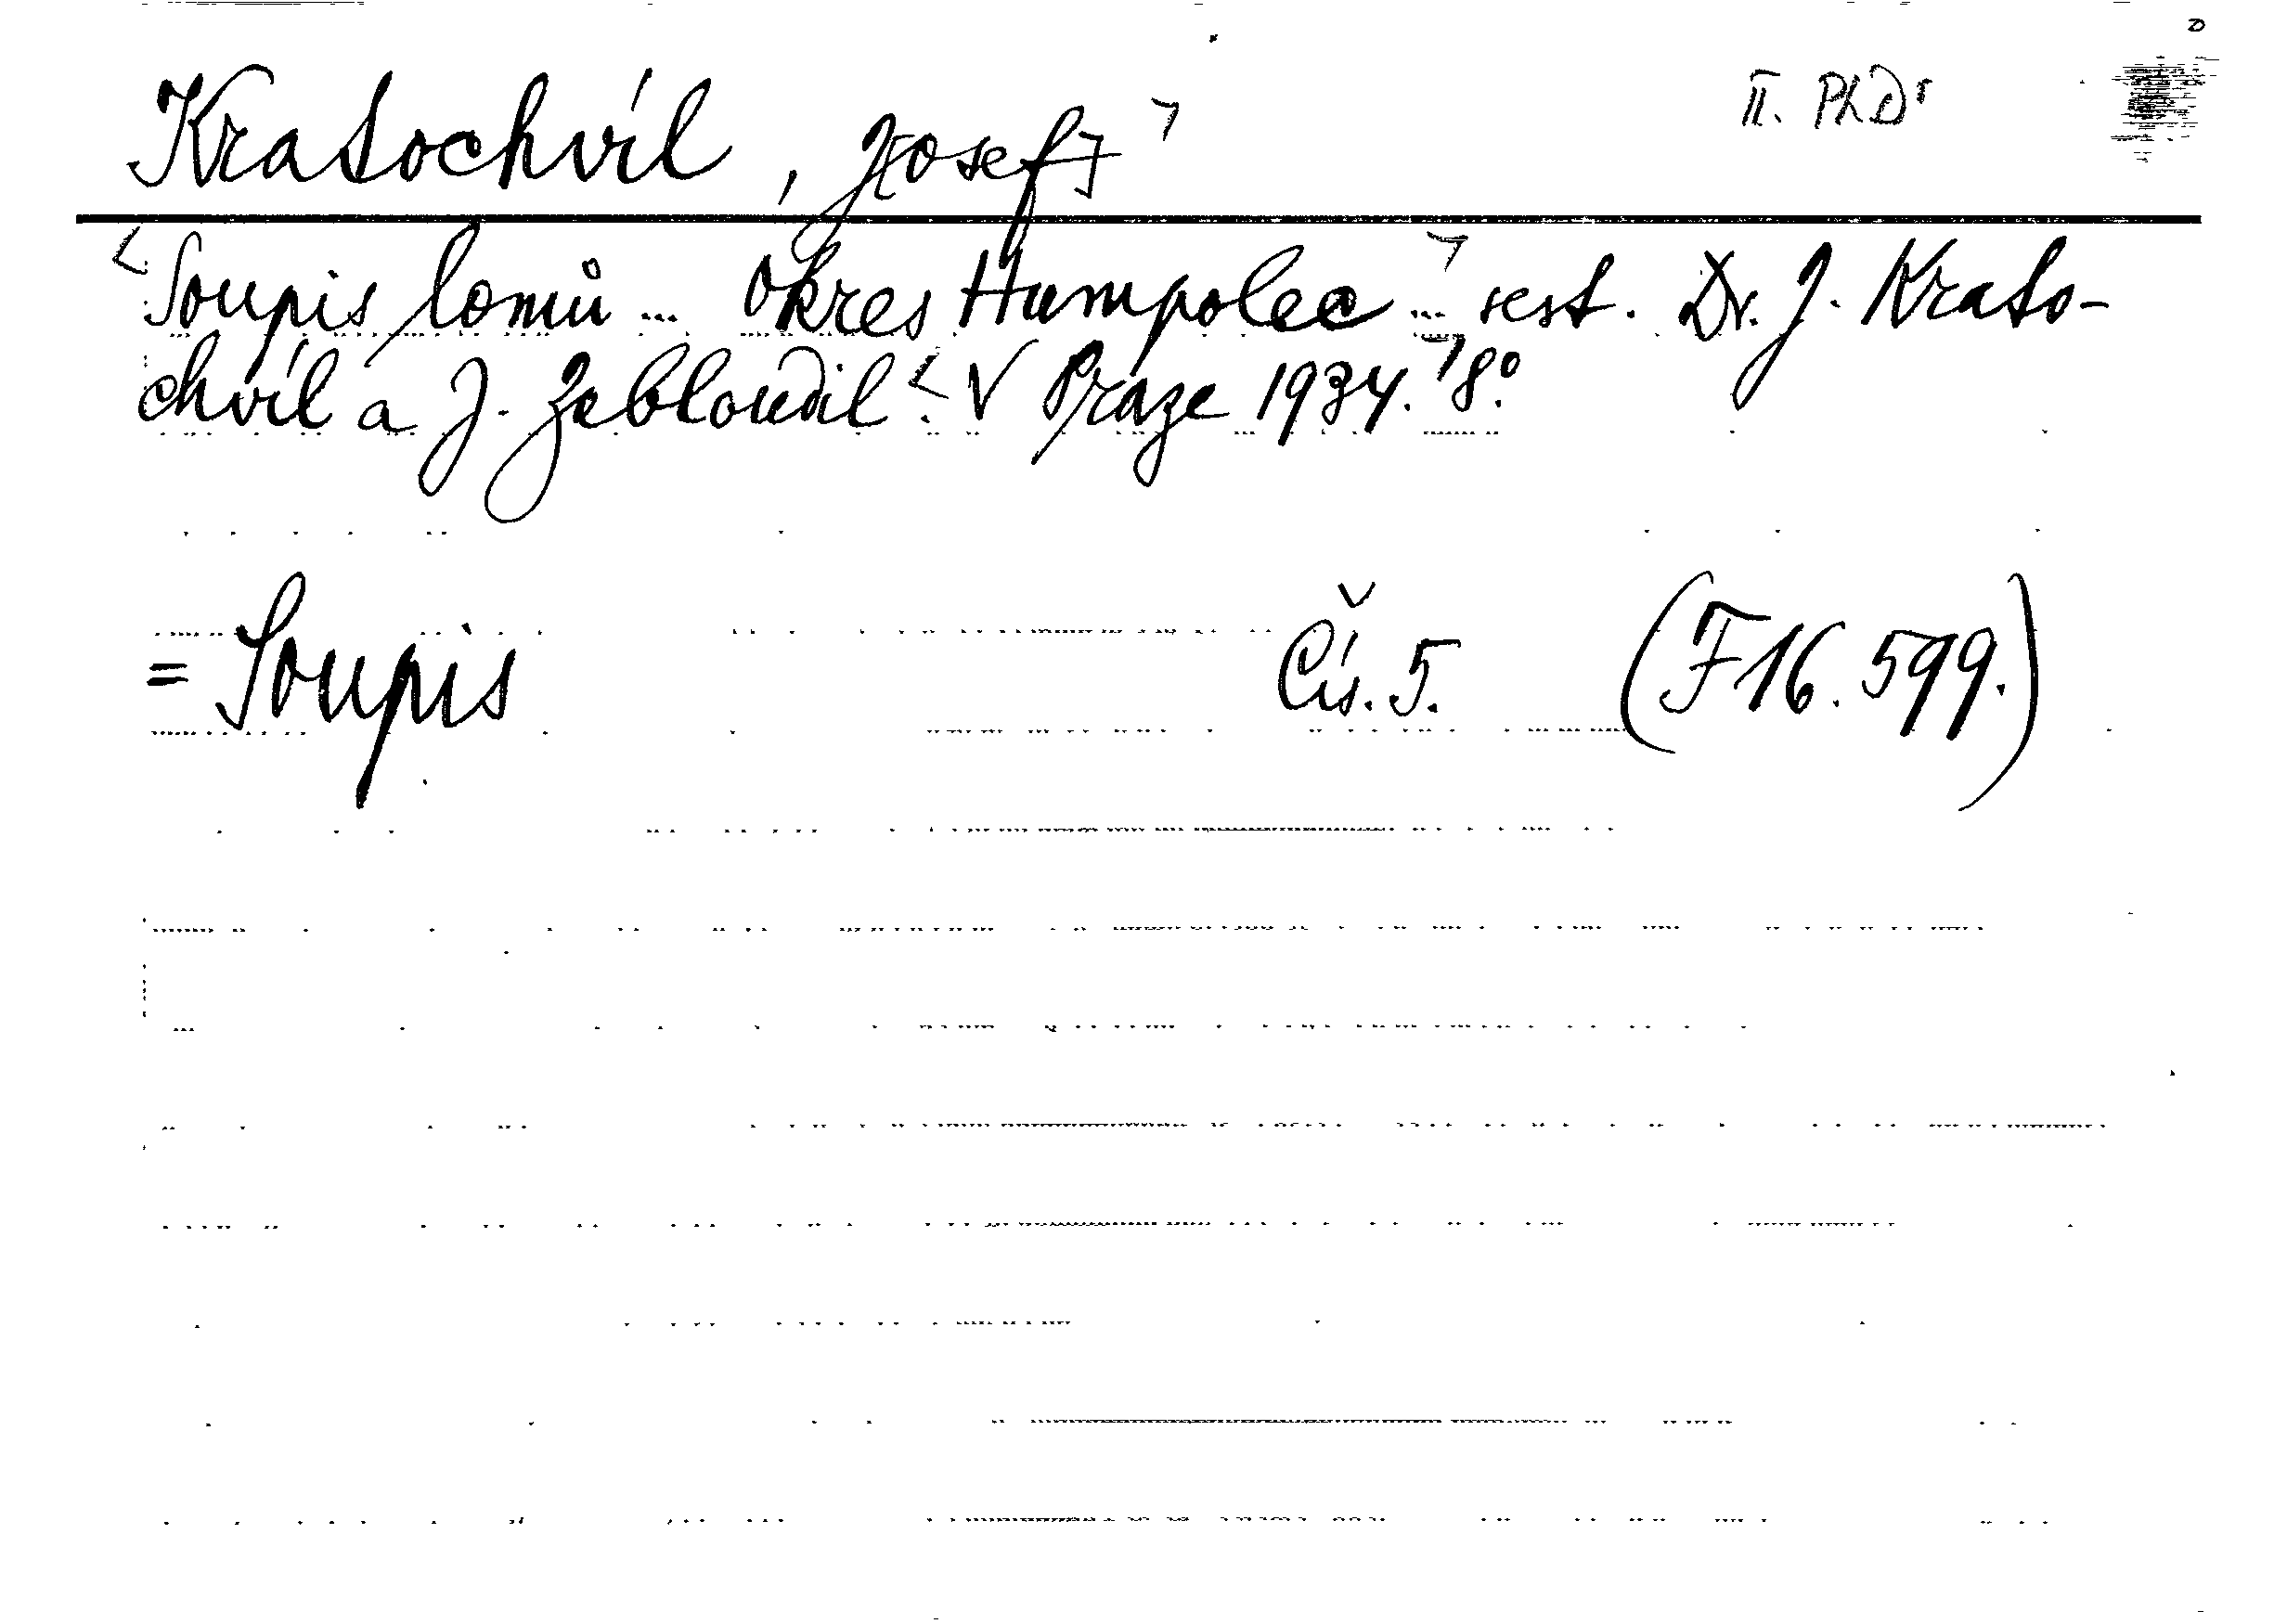 Kratochvíl, J[osef] II. PhDr
Soupis lomů ... Okres Humpolec ... sest. Dr. J. Krato-
chvíl a J. Zebloudil. V Praze 1934. 8°.
= Soupis Čís. 5. (F 16.599.)